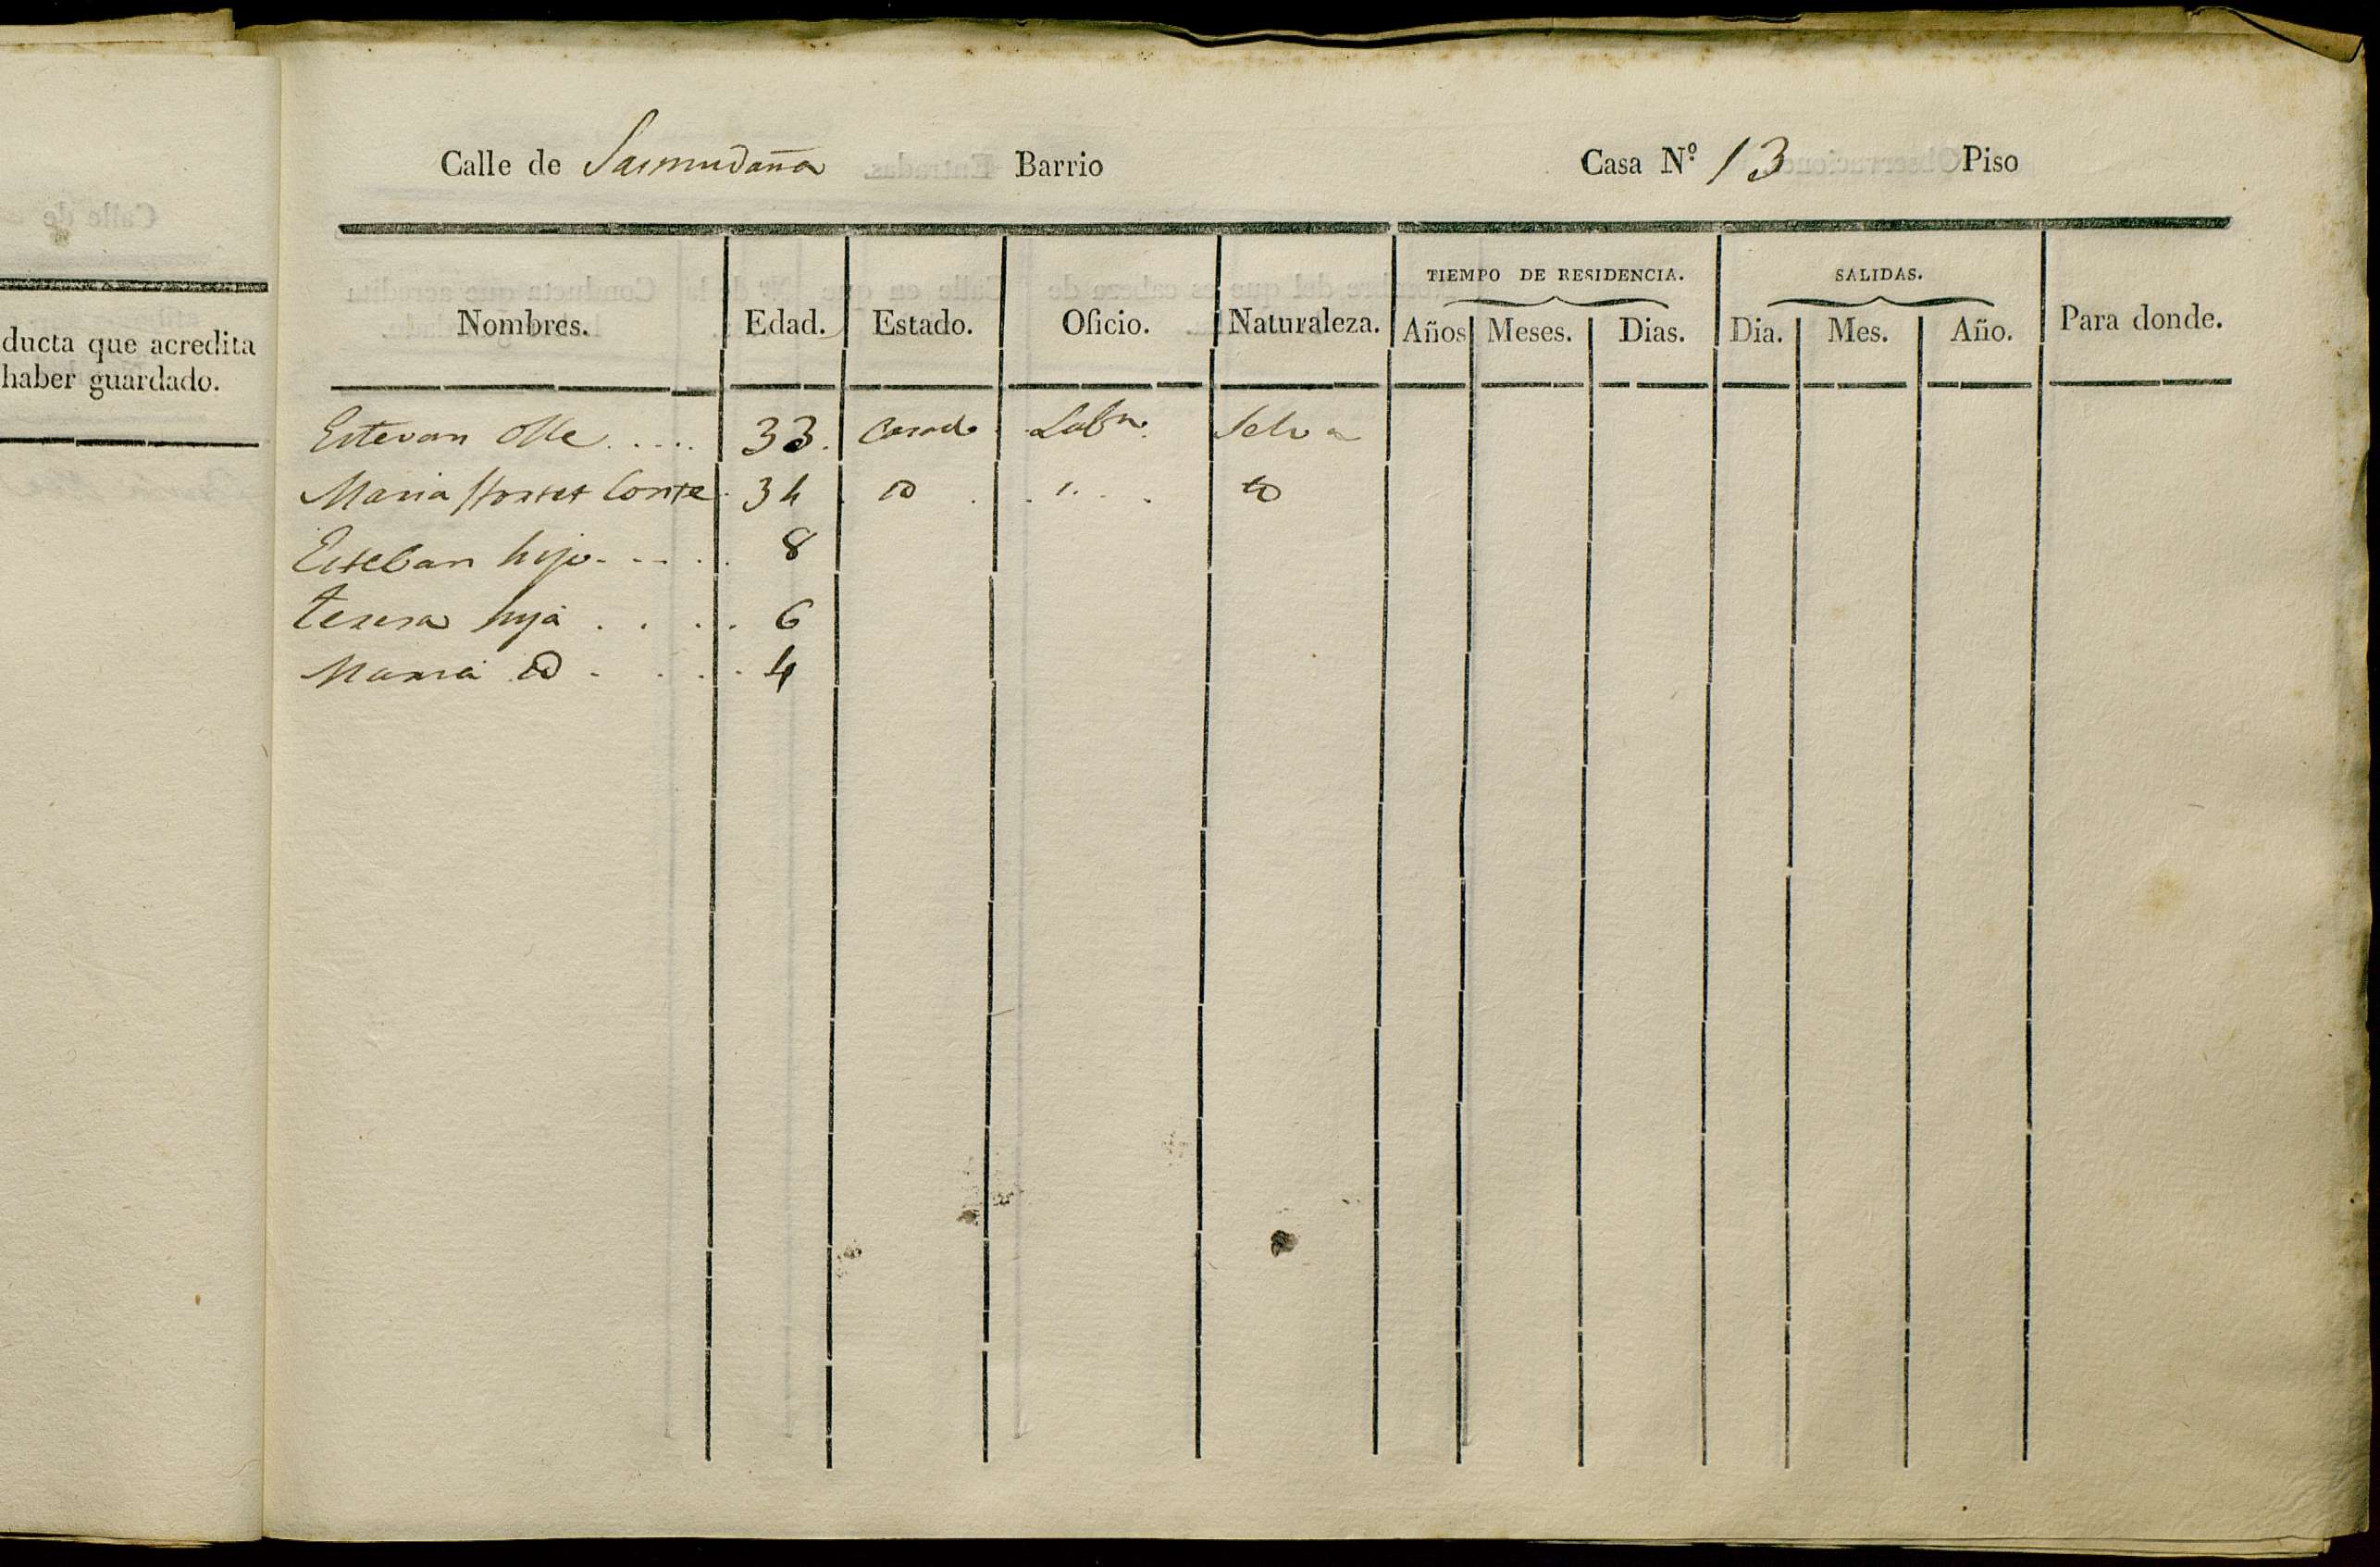 Calle de Sasmudaña Barrio Casa Nº 13 Piso
ducta que acredita
haber guardado.
TIEMPO DE RESIDENCIA. SALIDAS.
Nombres. Edad. Estado. Oficio. Naturaleza. Años Meses. Dias. Dia. Mes. Año. Para donde.
Estevan Olle..... 33. Casado. Labr. Selva
Maria Conte. 34. iD . . ". . . iD
Esteban hijo- - - . . 8
teresa hija . . . . . 6
Maria iD . . . . . 4